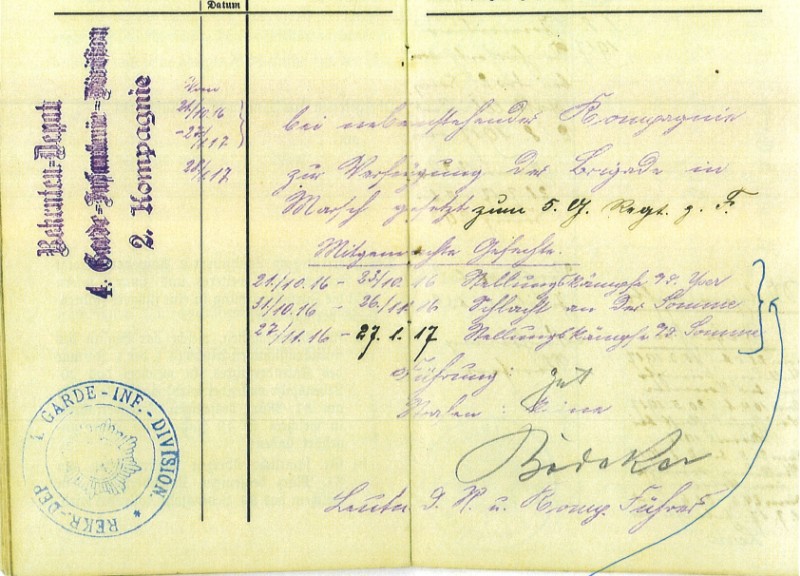 Datum
Rekruten-Depot
4. Garde-Infanterie-Division
2. Kompagnie
Vom
21/10.16
-27/1.17
28/1.17
bei nebenstehender Kompagnie
zur Verfügung der Brigade in
Marsch gesetzt zum 5. G. Regt. z. F.
Mitgemachte Gefechte:
21./10.16 - 23/10.16 Stellungskämpfe a. d. Yser
31/10.16 - 26/11.16 Schlacht an der Somme
27/11.16 - 27.1.17 Stellungskämpfe a. d. Somme
Führung gut
Strafen: Keine
Bödeker
Leutn. d. R. u. Komp. Führer
REKR.-DEP. 4. GARDE-INF.-DIVISION. *